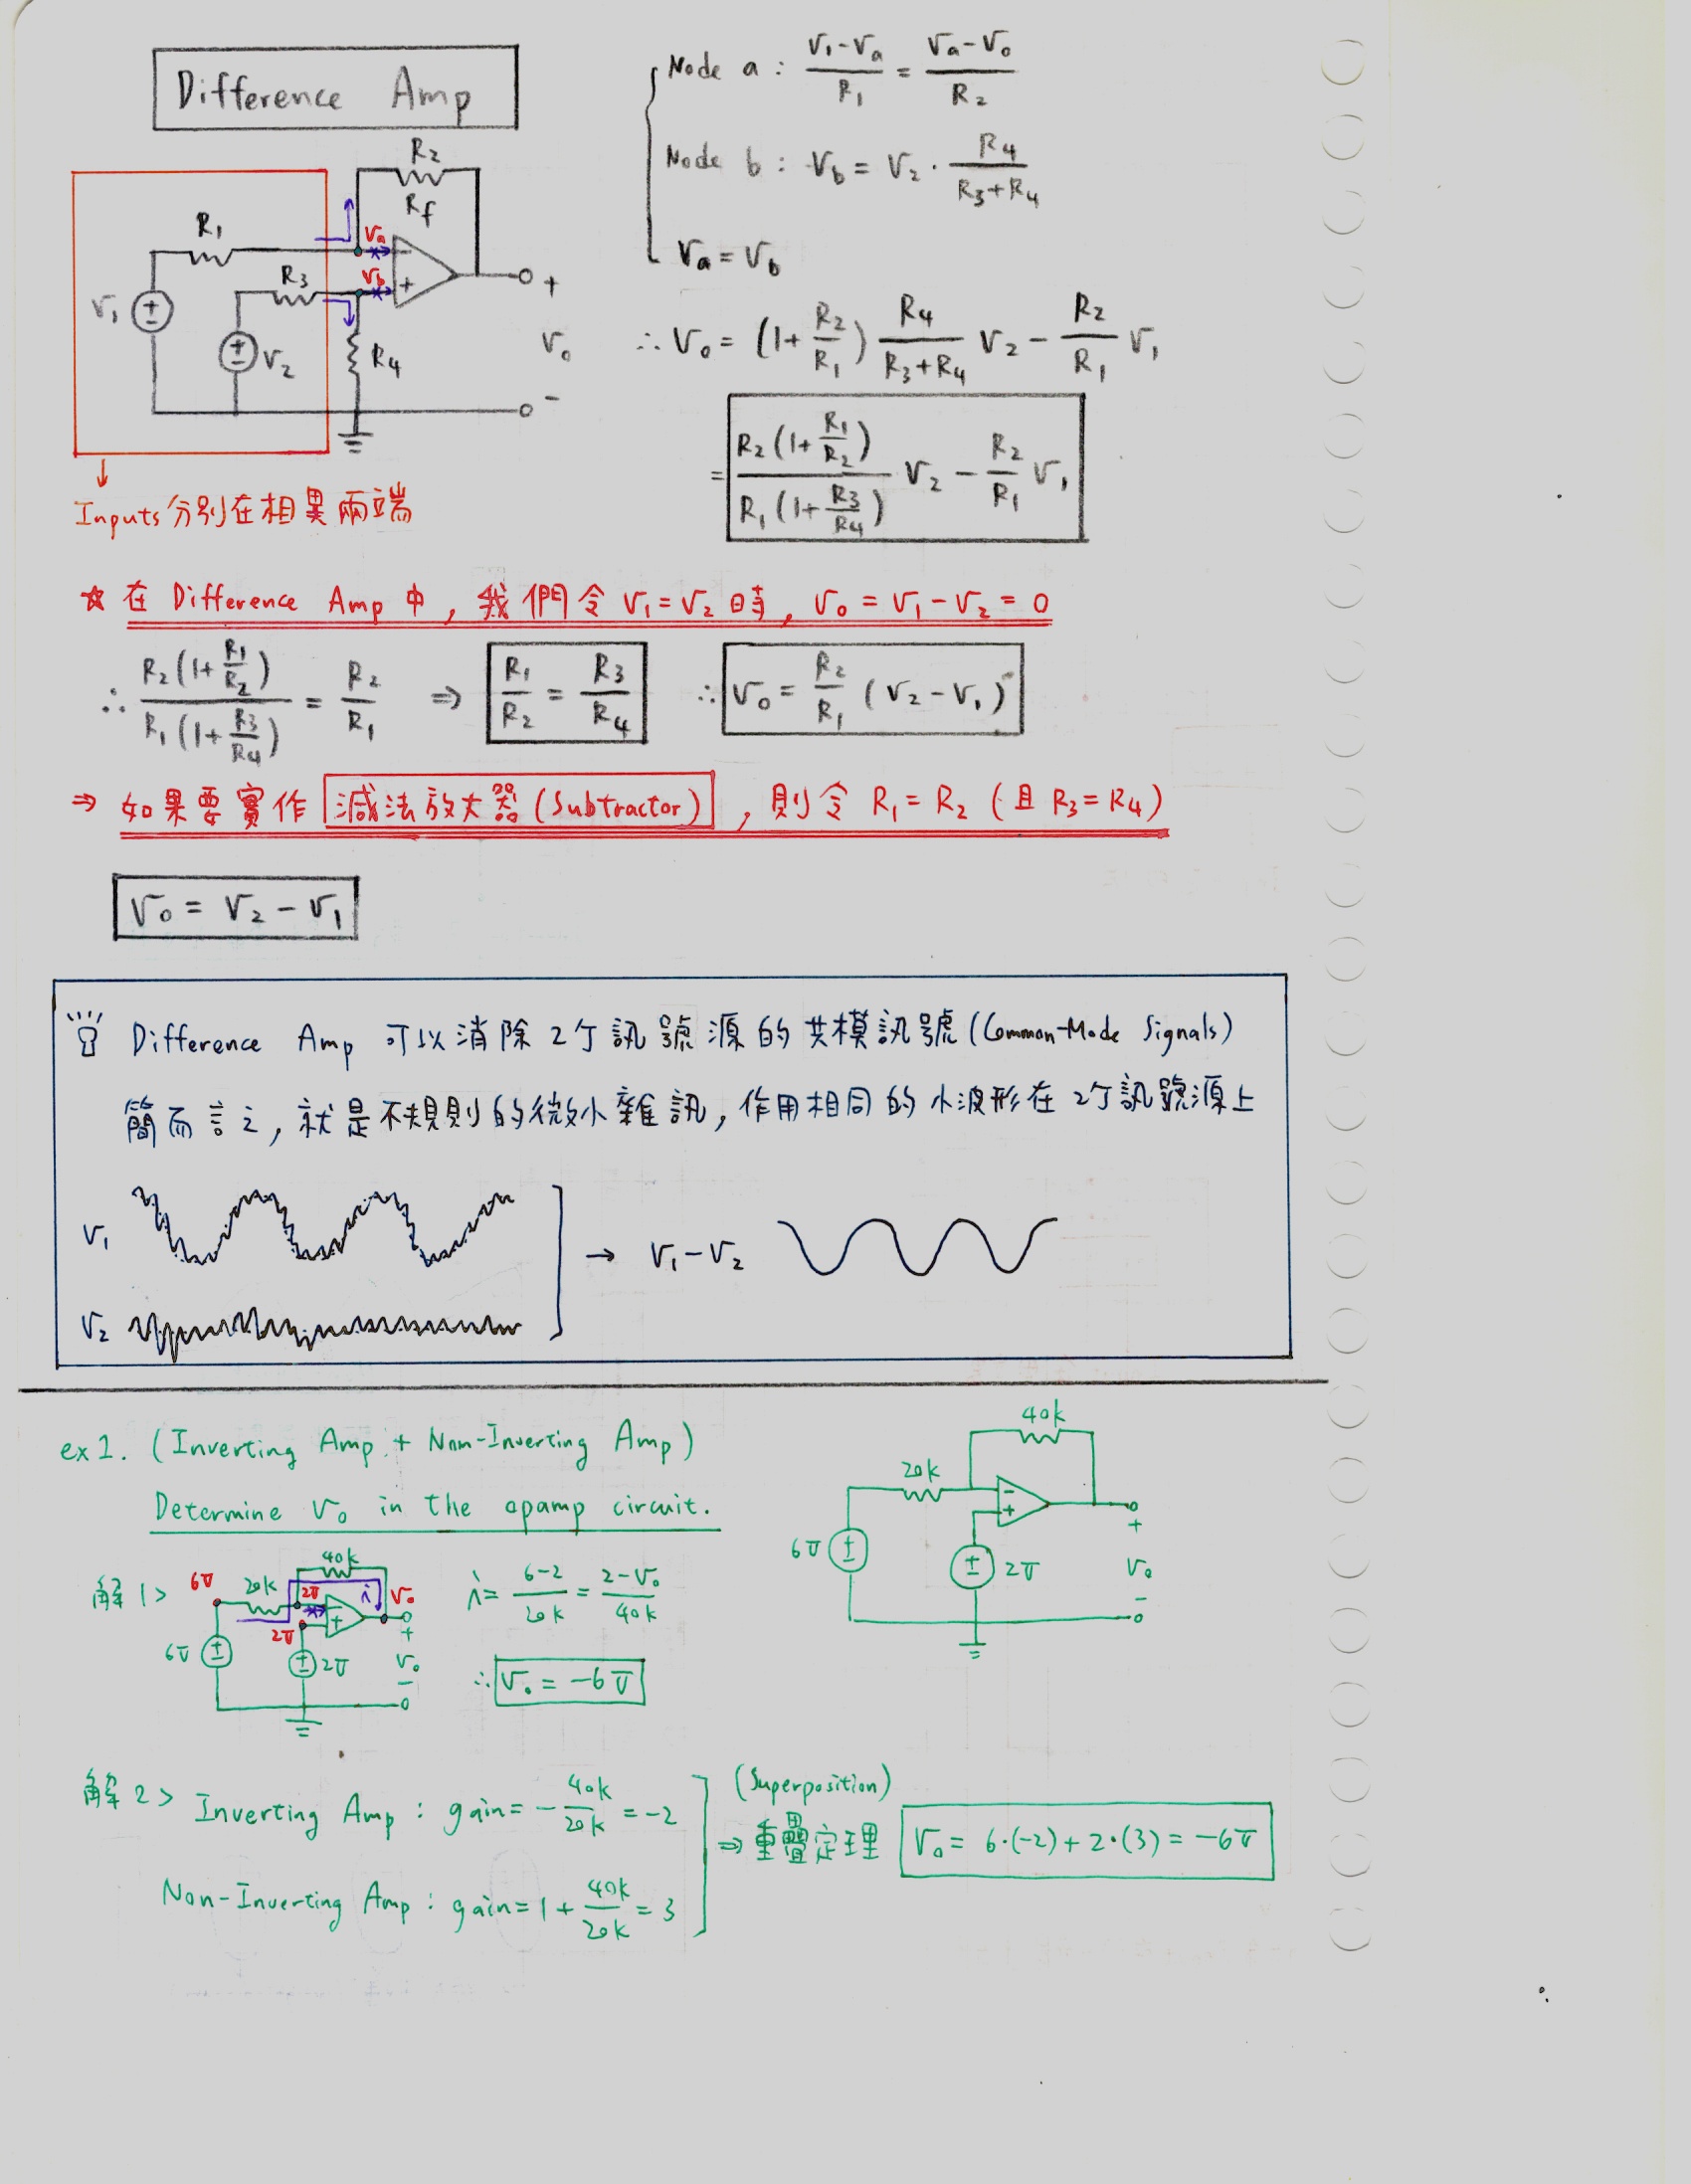 Difference Amp
R₂
Rf
R₁
Va
R₃
Vb
V₁
V₂
R₄
V₀
Inputs 分別在相異兩端
Node a : (V₁-Va)/R₁ = (Va-V₀)/R₂
Node b : Vb = V₂ · R₄/(R₃+R₄)
Va = Vb
∴ V₀ = (1+R₂/R₁) R₄/(R₃+R₄) V₂ - R₂/R₁ V₁
= R₂(1+R₁/R₂)/R₁(1+R₃/R₄) V₂ - R₂/R₁ V₁
☆ 在 Difference Amp 中, 我們令 V₁=V₂ 時, V₀ = V₁-V₂ = 0
∴ R₂(1+R₁/R₂)/R₁(1+R₃/R₄) = R₂/R₁ ⇒ R₁/R₂ = R₃/R₄ ∴ V₀ = R₂/R₁ (V₂-V₁)
⇒ 如果要實作 減法放大器 (Subtractor), 則令 R₁=R₂ (且 R₃=R₄)
V₀ = V₂ - V₁
Difference Amp 可以消除 2个訊號源的共模訊號 (Common-Mode Signals)
簡而言之, 就是不規則的微小雜訊, 作用相同的小波形在 2个訊號源上
V₁
→ V₁-V₂
V₂
ex1. (Inverting Amp + Non-Inverting Amp)
Determine V₀ in the opamp circuit.
40k
20k
6V
2V
V₀
解1>
6V
20k
40k
2V
i
V₀
2V
6V
2V
V₀
i = (6-2)/20k = (2-V₀)/40k
∴ V₀ = -6V
解2> Inverting Amp : gain = -40k/20k = -2
Non-Inverting Amp : gain = 1+40k/20k = 3
(Superposition)
⇒ 重疊定理 V₀ = 6·(-2)+2·(3) = -6V